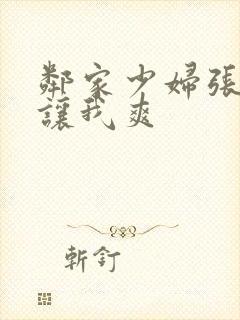 鄰家少婦張
讓我爽
斬釘